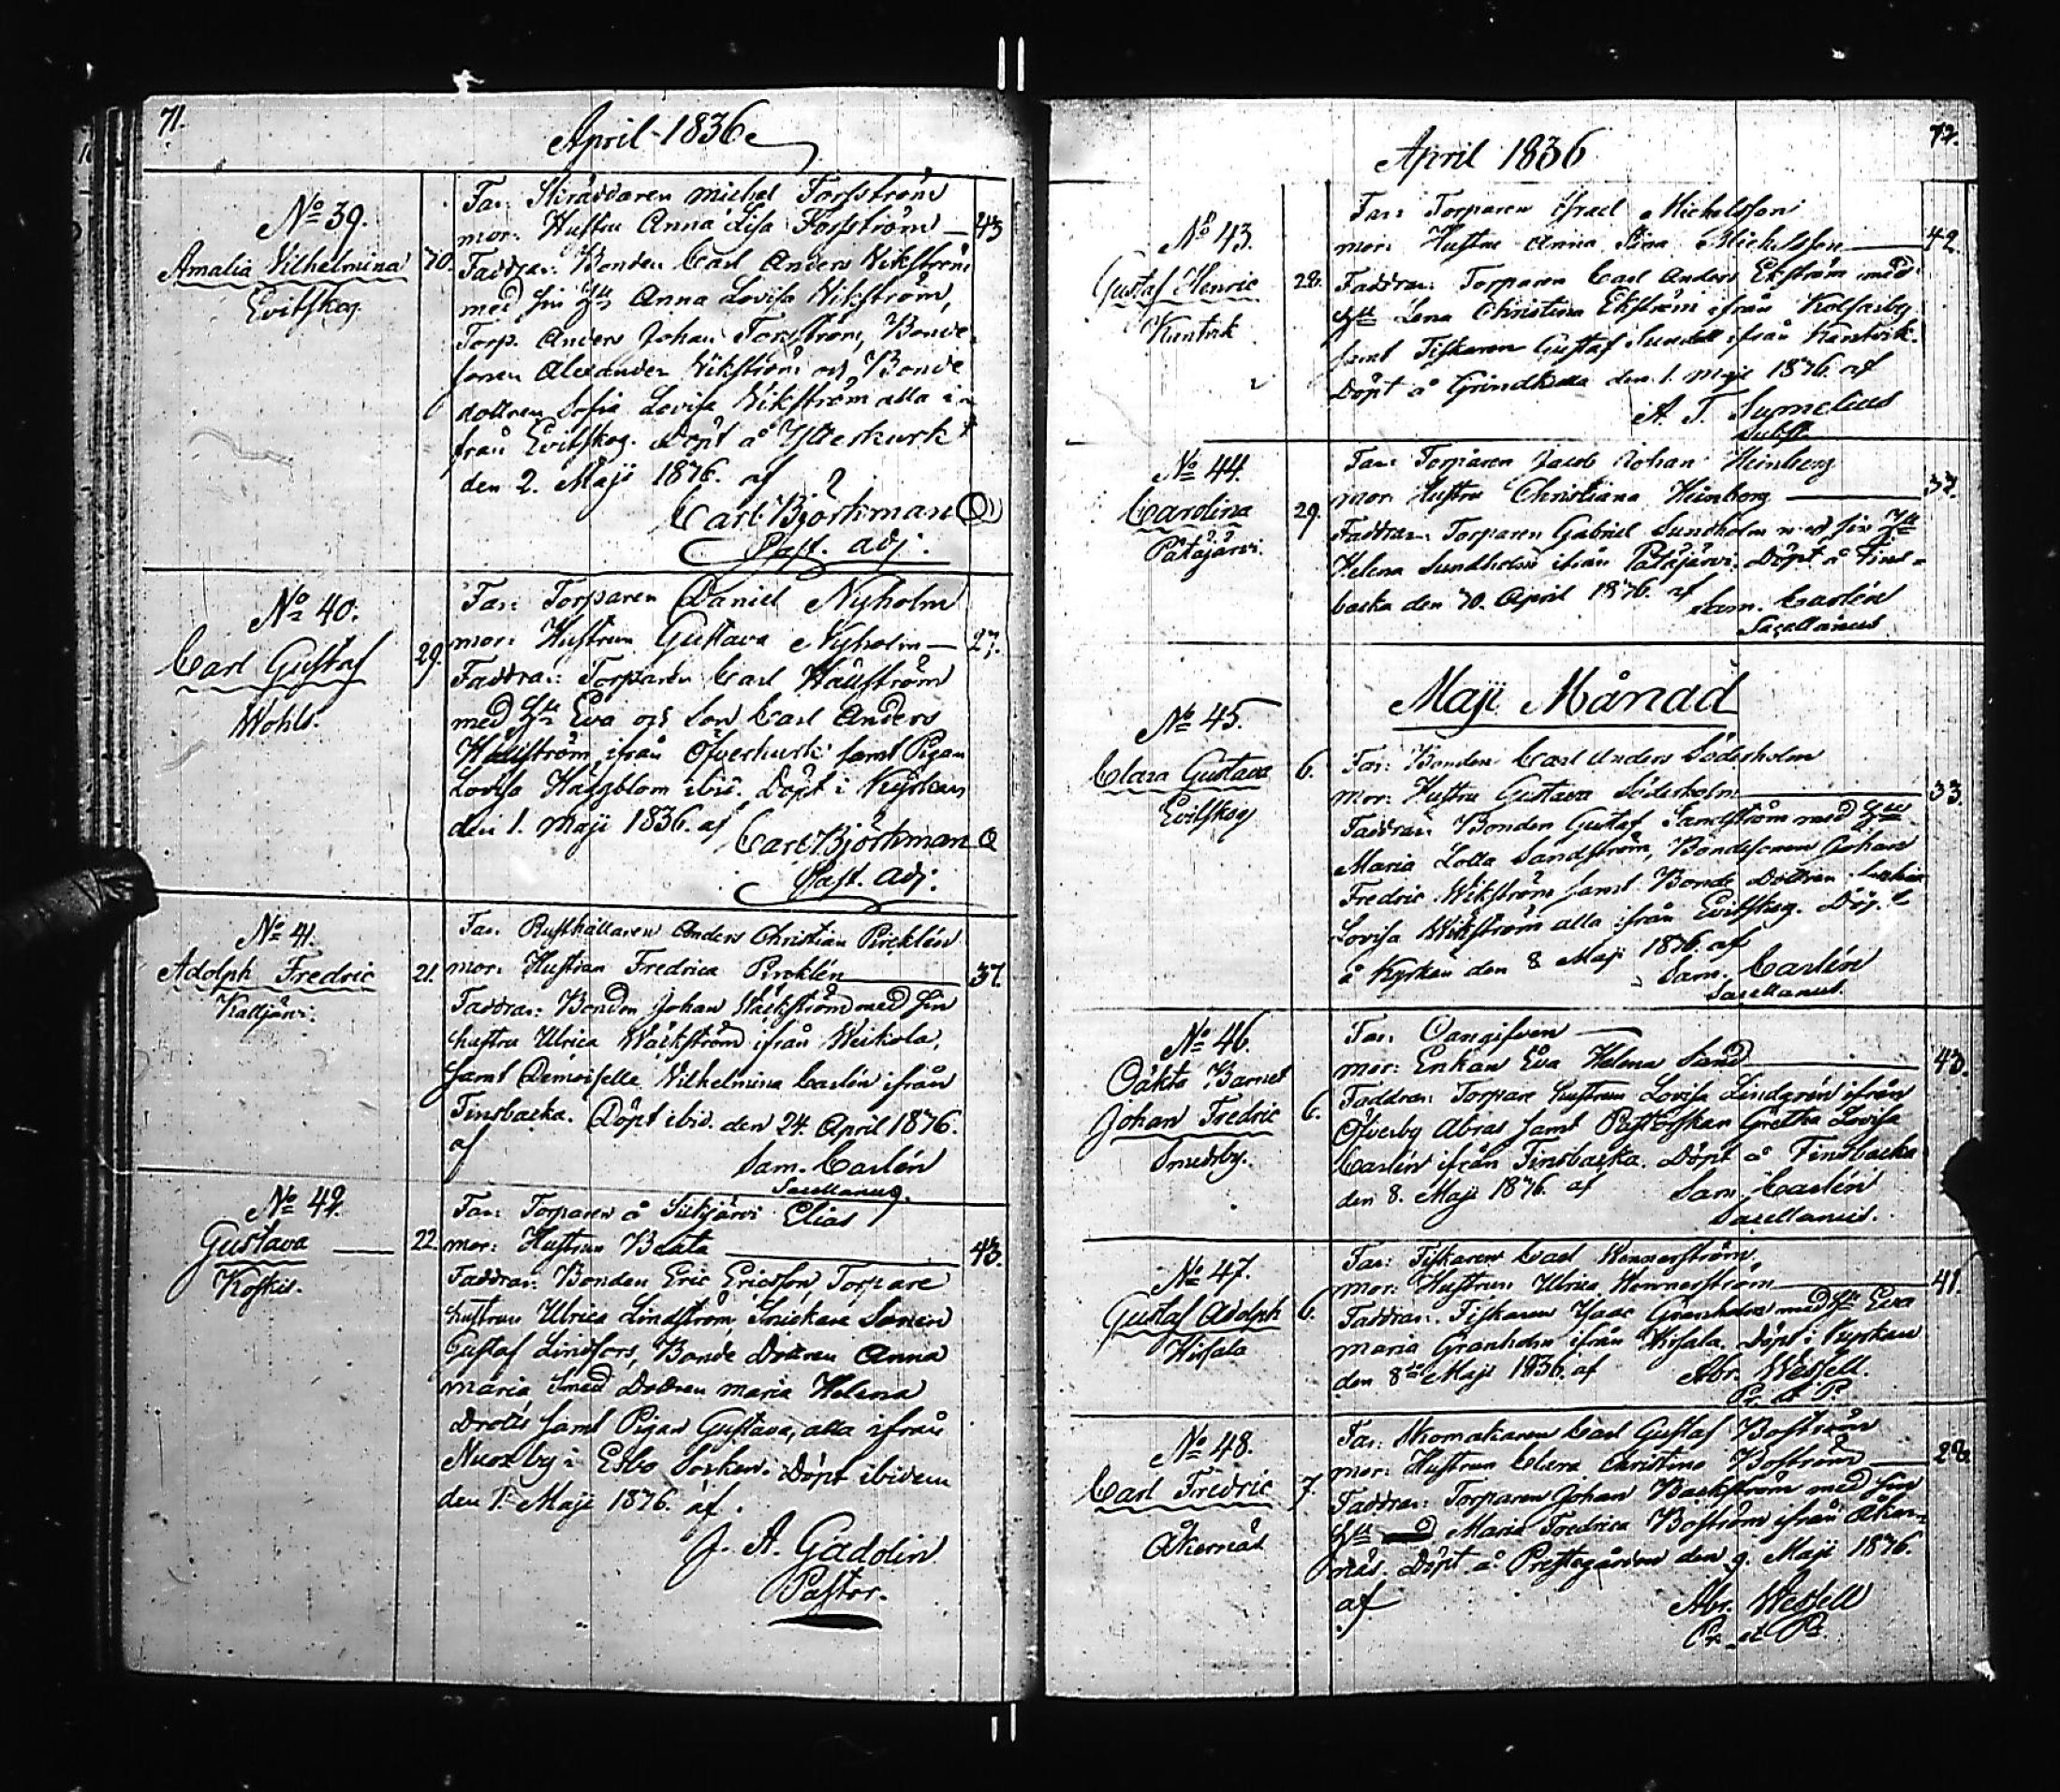 71.
April 1836
No 39.
Amalia Vilhelmina
Evitskog.
70.
Far: Skräddaren Michel Forsström
mor: Hustru Anna Lisa Forsström — 43
Faddrar: Bonden Carl Anders Wikström
med sin Hu Anna Lovisa Wikström,
Torp. Anders Johan Forsström, Bonde
sonen Alexander Wikström och Bonde
dottren Sofia Lovisa Wikström alla i
från Evitskog. Döpt å Ytterkurk
den 2. Maji 1876. af
Carl Björkman
Past. adj.
No 40.
Carl Gustaf
Wohls.
29.
Far: Torparen Daniel Nyholm
mor: Hustrun Gustava Nyholm — 27.
Faddrar: Torparen Carl Hällström
med Hu Eva och Son Carl Anders
Hällström, ifrån Öfverkurk samt Pigan
Lovisa Häggblom ibid. Döpt i Kyrkan
den 1. Maji 1836. af
Carl Björkman
Past. Adj.
No 41.
Adolph Fredric
Kalljärvi.
21.
Far: Rusthållaren Anders Christian Pirklén
mor: Hustrun Fredrica Pirklén — 37.
Faddrar: Bonden Johan Wäckström med sin
hustru Ulrica Wäckström ifrån Weikola,
samt Demoiselle Wilhelmina Carlén ifrån
Finsbacka. Döpt ibid. den 24. April 1876.
af
Sam. Carlén
Sacellanus.
No 42.
Gustava —
Koskis.
22.
Far: Torparen å Siikjärvi Elias
mor: Hustrun Beata — 43.
Faddrar: Bonden Eric Ericsson, Torpare
hustrun Ulrica Lindström, Snickare Sonen
Gustaf Lindfors, Bonde Dottren Anna
Maria Smed Dottren Maria Helena
Drotts samt Pigan Gustava, alla ifrån
Nuuxby i Esbo Socken. Döpt ibidem
den 1. Maji 1876. af.
J. A. Gadolin
Pastor.
72.
April 1836
No 43.
Gustaf Henric
Kantvik
28.
Far: Torparen Israel Michelsson
mor: Hustru Anna Stina Michelsson — 42.
Faddrar: Torparen Carl Anders Ekström med
Hu Lena Christina Ekström ifrån Kolsarby
samt Fiskaren Gustaf Sundell ifrån Kantvik.
Döpt å Grindkulla den 1. Maji 1876. af
A. T. Sumelius
Subst.
No 44.
Carolina
Patajärvi.
29.
Far: Torparen Jacob Johan Heinberg
mor: Hustru Christiana Heinberg — 37.
Faddrar: Torparen Gabriel Sundholm med sin Hu
Helena Sundholm ifrån Patajärvi. Döpt å Fins-
backa den 70. April 1876. af
Sam. Carlén
Sacellanus
Maji Månad
No 45.
Clara Gustava
Evitskog
6.
Far: Bonden Carl Anders Söderholm
Mor: Hustru Gustava Söderholm — 33.
Faddrar: Bonden Gustaf Sandström med Hu
Maria Lotta Sandström, Bondesonen Johan
Fredric Wikström samt Bonde Dottren
Lovisa Wikström alla ifrån Evitskog. Döpt
å Kyrkan den 8 Maji 1876. af
Sam. Carlén
Sacellanus.
No 46.
Oäkta Barnet
Johan Fredric
Smedsby.
6.
Far: Oangifven —
mor: Enkan Eva Helena Sand — 43.
Faddrar: Torpare hustrun Lovisa Lindgrén ifrån
Öfverby Abras samt Pastorskan Gretha Lovisa
Carlén ifrån Finsbacka. Döpt å Finsbacka
den 8. Maji 1876. af
Sam. Carlén
Sacellanus.
No 47.
Gustaf Adolph
Hirsala
6.
Far: Fiskaren Carl Wennerström.
mor: Hustrun Ulrica Wennerström — 41.
Faddrar: Fiskaren Isaac Granholm med Hu Eva
Maria Granholm ifrån Hirsala. Döpt i Kyrkan
den 8de Maji 1836. af
Abr. Wessell.
Pr. et P.
No 48.
Carl Fredric
Åkernäs
7.
Far: Skomakaren Carl Gustaf Boström
mor: Hustrun Clara Christina Boström — 28.
Faddrar: Torparen Johan Backström med sin
Hu Maria Fredrica Boström ifrån Åker-
näs. Döpt å Prestegården den 9. Maji 1876.
af
Abr. Wessell
Pr. et P.